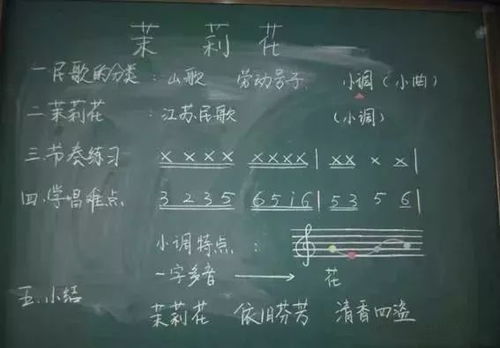 茉莉花
一.民歌的分类：山歌 劳动号子 小调（小曲）
二.茉莉花：江苏民歌 （小调）
三.节奏练习 x x x x x x x x | x x x x |
四.学唱难点 3 2 3 5 6 5 1 6 | 5 3 5 6 |
小调特点：
一字多音 → 花
五.小结 茉莉花 依旧芬芳 清香四溢